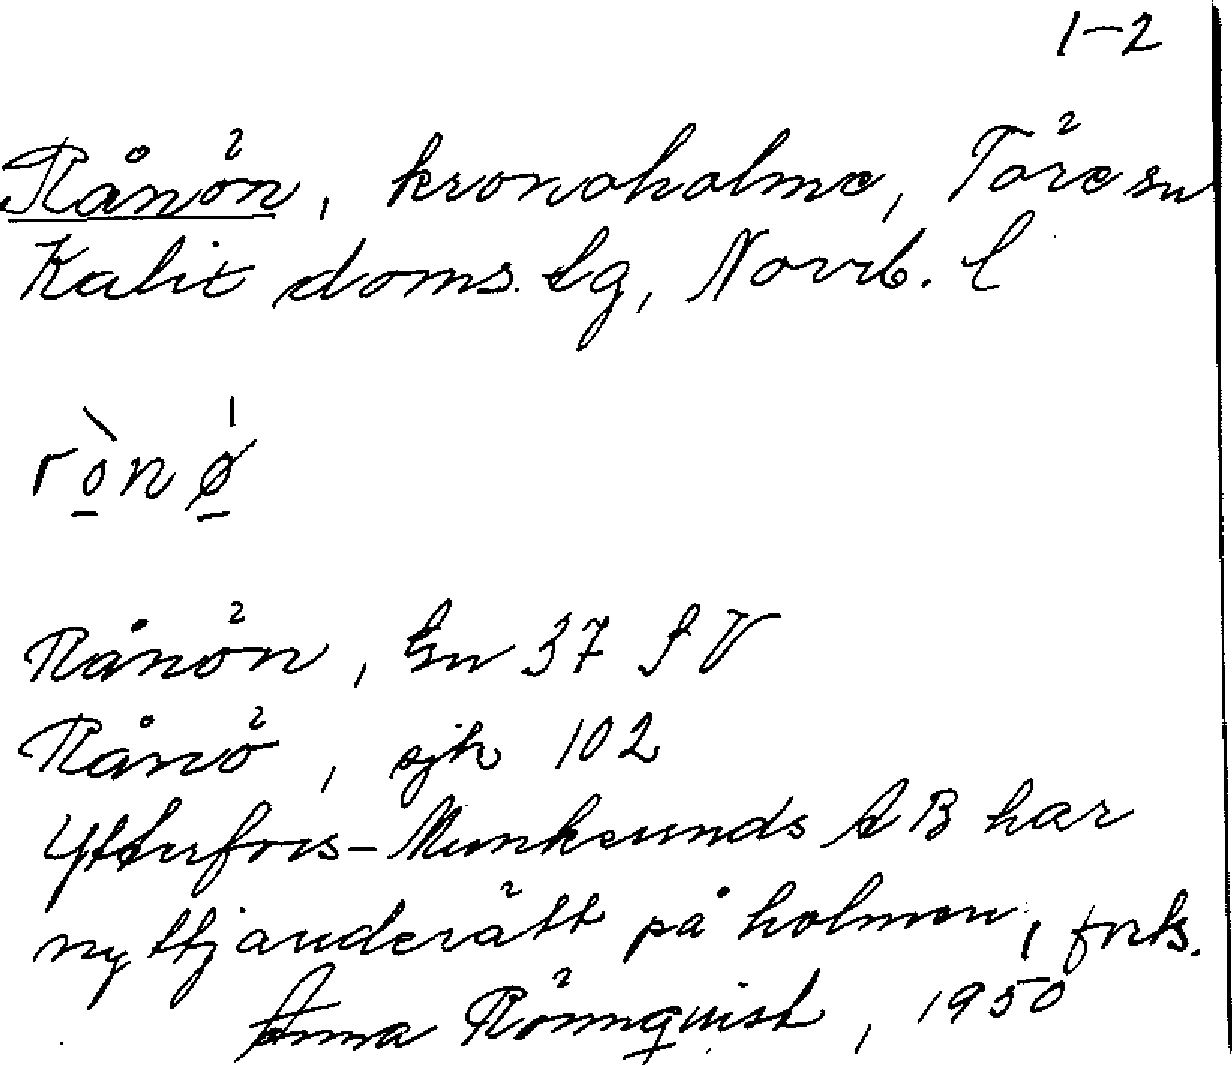 1-2
Rånön, kronoholme, Töre sn
Kalix doms. lg, Norrb. l
rò̱nǿ̱
Rånön, Gn 37 SV
Rånö, sjk 102
Ytterfors-Munksunds AB har
nyttjanderätt på holmen, forts.
Anna Rönnquist, 1950